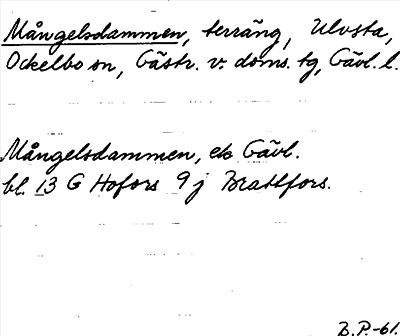 Mångelsdammen, terräng, Ulvsta,
Ockelbo sn, Gästr. v. doms. tg, Gävl. l.
Mångelsdammen, ek Gävl.
bl. 13 G Hofors 9 j Brattfors.
B.P.-61.